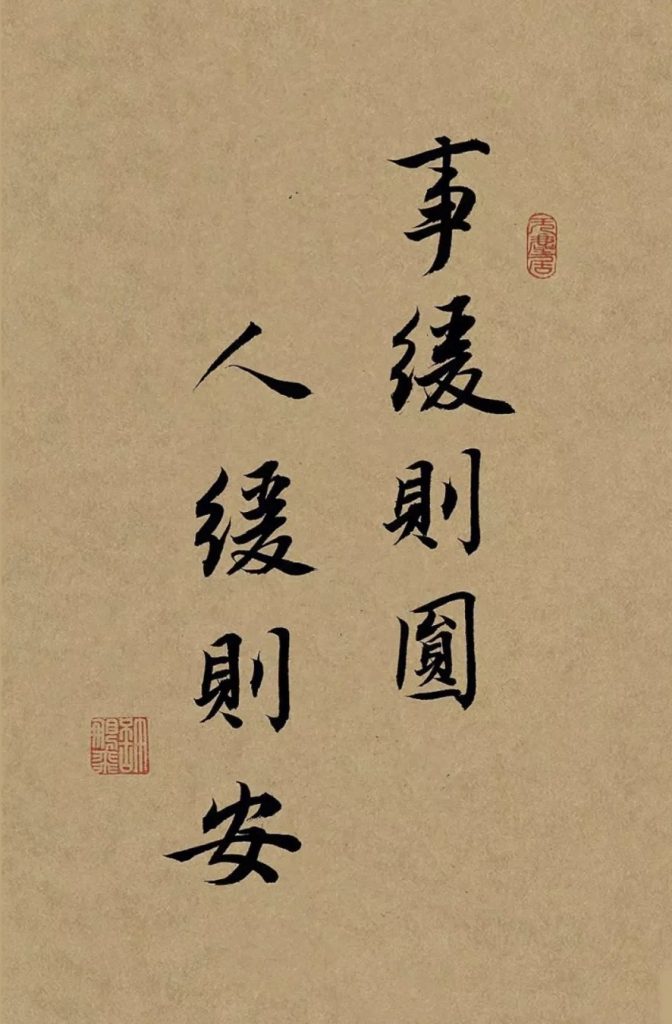 事緩則圓
人緩則安